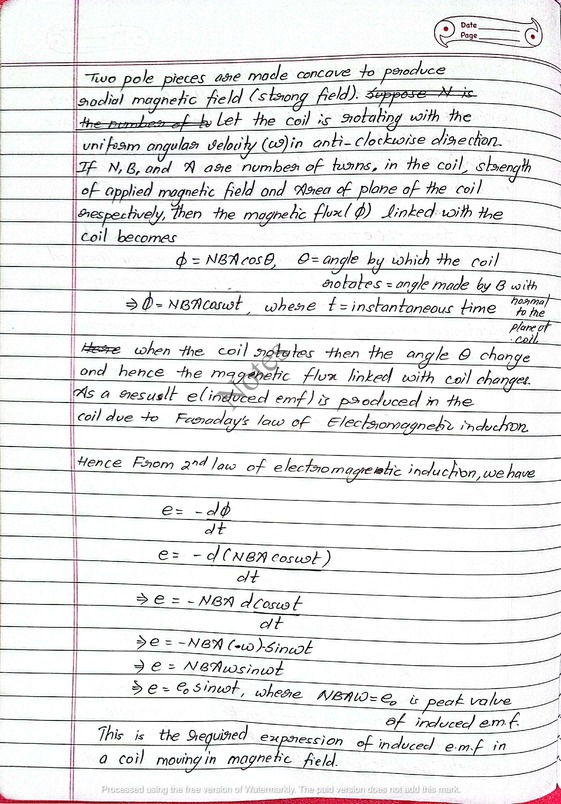 Date
Page
Two pole pieces are made concave to produce
radial magnetic field (strong field). Suppose N is
the number of tu Let the coil is rotating with the
uniform angular velocity (ω) in anti-clockwise direction.
If N, B, and A are number of turns, in the coil, strength
of applied magnetic field and Area of plane of the coil
respectively, Then the magnetic flux (ϕ) linked with the
coil becomes
ϕ = NBA cosθ, θ = angle by which the coil
rotates = angle made by B with
normal to the plane of coil.
⇒ ϕ = NBAcosωt, where t = instantaneous time
Here when the coil rotates then the angle θ change
and hence the magnetic flux linked with coil changes.
As a resuslt e (induced emf) is produced in the
coil due to Faraday's law of Electromagnetic induction
Notes
Hence From 2nd law of electromagnetic induction, we have
e = -dϕ
dt
e = -d(NBA cosωt)
dt
⇒ e = -NBA dcosωt
dt
⇒ e = -NBA (-ω)·sinωt
⇒ e = NBAωsinωt
⇒ e = e₀ sinωt, where NBAω = e₀ is peak value
of induced e.m.f.
This is the required expression of induced e.m.f in
a coil moving in magnetic field.
Processed using the free version of Watermarkly. The paid version does not add this mark.